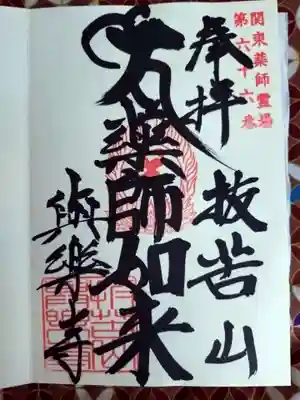 関東薬師霊場
第六十六番
奉拝
抜苦山
薬師如来
與楽寺